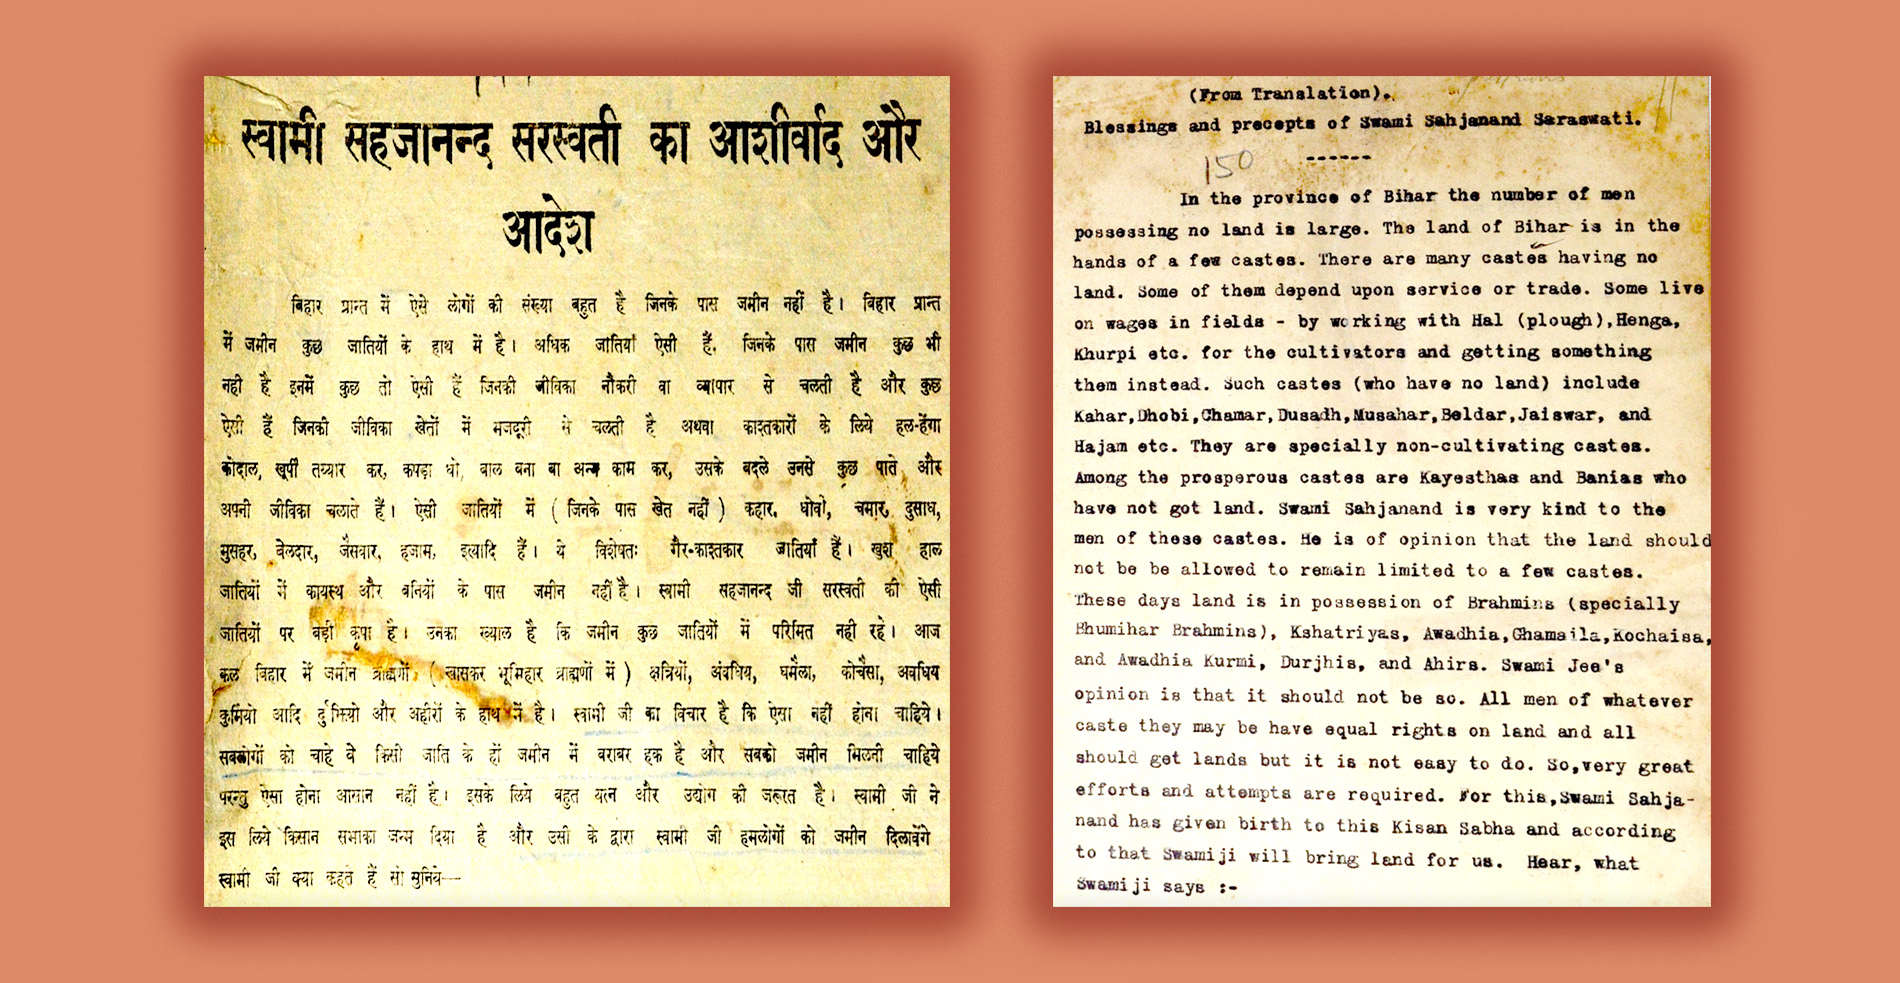 स्वामी सहजानन्द सरस्वती का आशीर्वाद और
आदेश
बिहार प्रान्त में ऐसे लोगों की संख्या बहुत है जिनके पास जमीन नहीं है। बिहार प्रान्त
में जमीन कुछ जातियों के हाथ में है। अधिक जातियां ऐसी हैं, जिनके पास जमीन कुछ भी
नही है इनमें कुछ तो ऐसी हैं जिनकी जीविका नौकरी वा व्यापार से चलती है और कुछ
ऐसी हैं जिनकी जीविका खेतों में मजदूरी से चलती है अथवा काश्तकारों के लिये हल-हेंगा
कोदाल, खूर्पी तय्यार कर, कपड़ा धो, बाल बना वा अन्य काम कर, उसके बदले उनसे कुछ पाते और
अपनी जीविका चलाते हैं। ऐसी जातियों में ( जिनके पास खेत नहीं ) कहार, धोवी, चमार, दुसाध,
मुसहर, वेलदार, जैसवार, हजाम, इत्यादि हैं। ये विशेषतः गैर-काश्तकार जातियाँ हैं। खुश हाल
जातियों में कायस्थ और बनियों के पास जमीन नहीं है। स्वामी सहजानन्द जी सरस्वती की ऐसी
जातियों पर बड़ी कृपा है। उनका ख्याल है कि जमीन कुछ जातियों में परिमित नही रहे। आज
कल बिहार में जमीन ब्राह्मणों ( खासकर भूमिहार ब्राह्मणों में ) क्षत्रियों, अंवधिय, घमैला, कोचैसा, अवधिय
कुर्मियो आदि दुर्झियो और अहीरों के हाथ में है। स्वामी जी का विचार है कि ऐसा नहीं होना चाहिये।
सबलोगों को चाहे वे किसी जाति के हों जमीन में बराबर हक है और सबको जमीन मिलनी चाहिये
परन्तु ऐसा होना आसान नहीं है। इसके लिये बहुत यत्न और उद्योग की जरूरत है। स्वामी जी ने
इस लिये किसान सभाका जन्म दिया है और उसी के द्वारा स्वामी जी हमलोगों को जमीन दिलावेंगे
स्वामी जी क्या कहते हैं सो सुनिये—
(From Translation).
Blessings and precepts of Swami Sahjanand Saraswati.
------
150
In the province of Bihar the number of men
possessing no land is large. The land of Bihar is in the
hands of a few castes. There are many castes having no
land. Some of them depend upon service or trade. Some live
on wages in fields - by working with Hal (plough),Henga,
Khurpi etc. for the cultivators and getting something
them instead. Such castes (who have no land) include
Kahar,Dhobi,Chamar,Dusadh,Musahar,Beldar,Jaiswar, and
Hajam etc. They are specially non-cultivating castes.
Among the prosperous castes are Kayesthas and Banias who
have not got land. Swami Sahjanand is very kind to the
men of these castes. He is of opinion that the land should
not be be allowed to remain limited to a few castes.
These days land is in possession of Brahmins (specially
Bhumihar Brahmins), Kshatriyas, Awadhia,Ghamaila,Kochaisa,
and Awadhia Kurmi, Durjhis, and Ahirs. Swami Jee's
opinion is that it should not be so. All men of whatever
caste they may be have equal rights on land and all
should get lands but it is not easy to do. So,very great
efforts and attempts are required. For this,Swami Sahja-
nand has given birth to this Kisan Sabha and according
to that Swamiji will bring land for us. Hear, what
Swamiji says :-